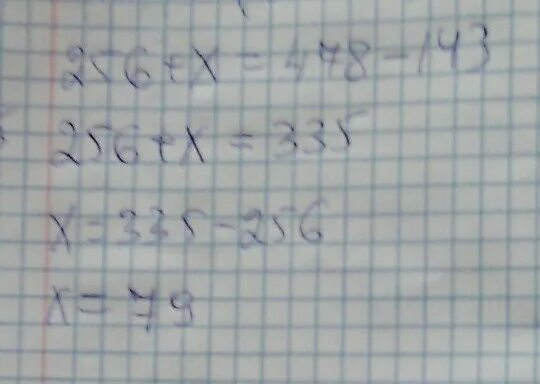 256+x=478-143
256+x=335
x=335-256
x=79